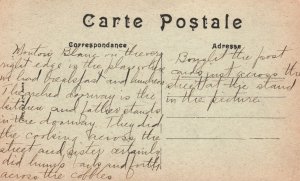 Carte Postale
Correspondance
Adresse
on the very
right edge is the place
we had breakfast and lunches
The arched doorway is the
kitchen and father stands
in the doorway. They did
the cooking across the
street and sister
did hurry back and forth
across the cobbles
Bought the post
cards just across the
street at the stand
in the picture.